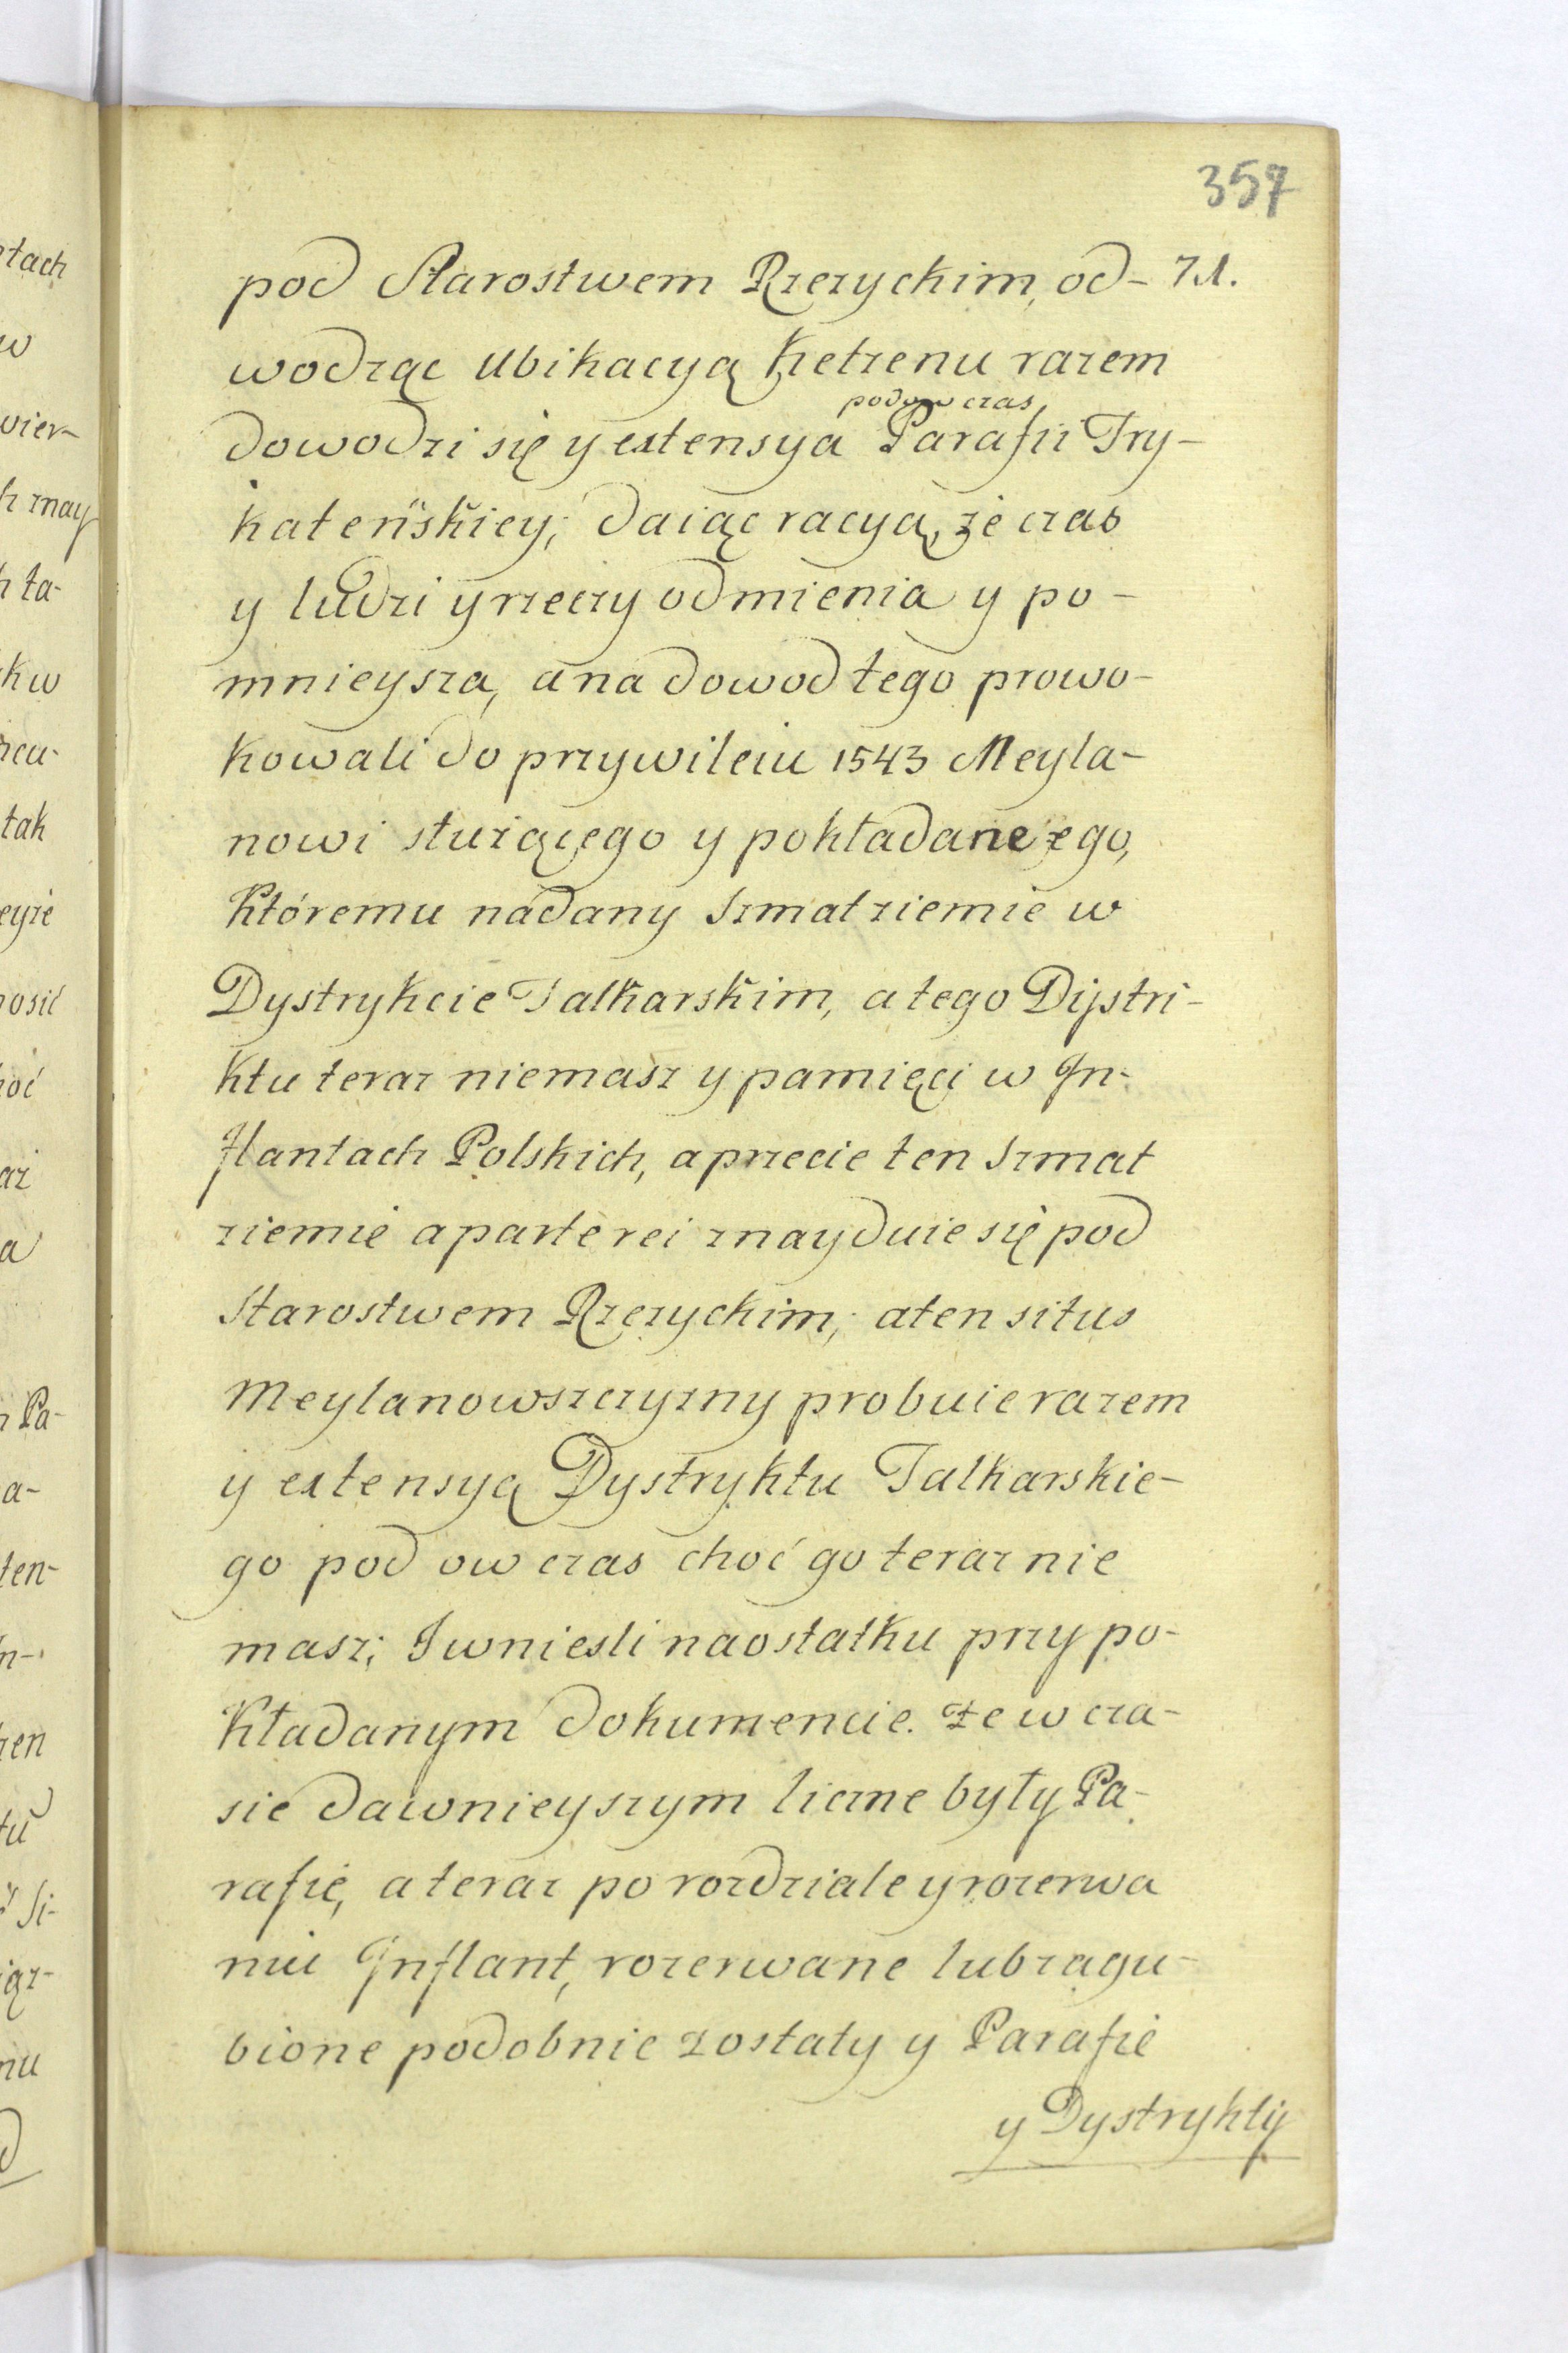 357
pod Starostwem Rzezyckim, od- 71.
wodząc Ubikacyą Ketzenu razem
podowczas
dowodzi się y extensya Parafii Try-
kateńskiey; daiąc racyą, że czas
y ludzi y rzeczy odmienia y po-
mnieysza, a na dowod tego prowo-
kowali do przywileiu 1543 Meyla-
nowi służącego y pokładanego,
Któremu nadany szmat ziemie w
Dystrykcie Talkarskim, a tego Dystri-
ktu teraz niemasz y pamięci w In-
flantach Polskich, a przecie ten szmat
ziemie aparte rei znayduie się pod
Starostwem Rzezyckim; a ten situs
Meylanowszczyzny probuie razem
y extensyą Dystryktu Talkarskie-
go pod ow czas choć go teraz nie
masz; Iwniesli naostatku przy po-
kładanym dokumencie. że w cza-
sie dawnieyszym liczne były Pa-
rafie, a teraz po rozdziale y rozerwa
niu Inflant, rozerwane lub zagu-
bione podobnie zostały y Parafie
y Dystrykty
tach
w
wier-
h may
h ta-
k w
tak
eyże
nosić
hoć
a
Pa-
a-
ten-
n-
zen
tu
Si-
iąz-
nu